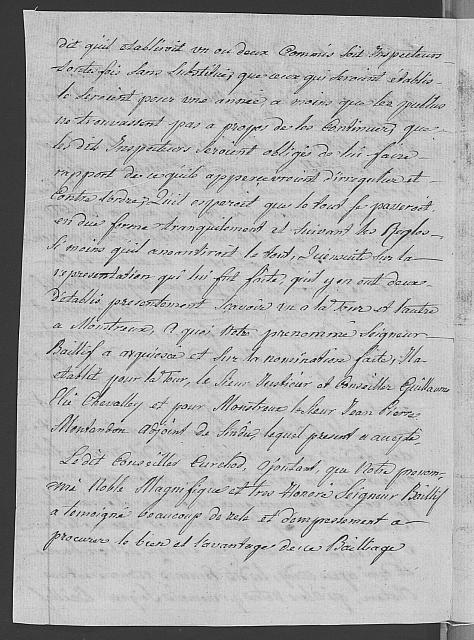 dit qu'il etabliroit un ou deux Commis soit Inspecteurs
toutes fois sans Substitué, que ceux qui seroient etablis
le seroient pour une année, a moins que les
ne trouvassent pas a propos de les Continuer, que
les dit Inspecteurs seroient obligés de lui faire
rapport de ce qu'ils appercevroient d'irregulier et
Contre l'ordre, qu'il esperoit que le tout se passeroit
en due forme tranquilement et suivant les Regles
Si moins qu'il anantiroit le tout, Ensuite sur la
representation qui lui fut faite, qu'il y en ont deux
d'établis presentement Scavoir un a la Tour et l'autre
a Montreux, A quoi Notre prenommé Seigneur
Baillif a acquiescé et sur la nomination faite, Il a
etablit pour la Tour, le Sieur Justicier et Conseiller Guillaume
Chevalley et pour Monstreux le Sieur Jean Pierre
Montandon Adjoint de lequel present a accepté.
Le dit Conseiller Curchod, Ajoutant, que Notre prenom-
mé Noble Magnifique et tres Honoré Seigneur Baillif
a temoigné beaucoup de zele et d'empressement a
procurer le bien et l'avantage de ce Bailliage